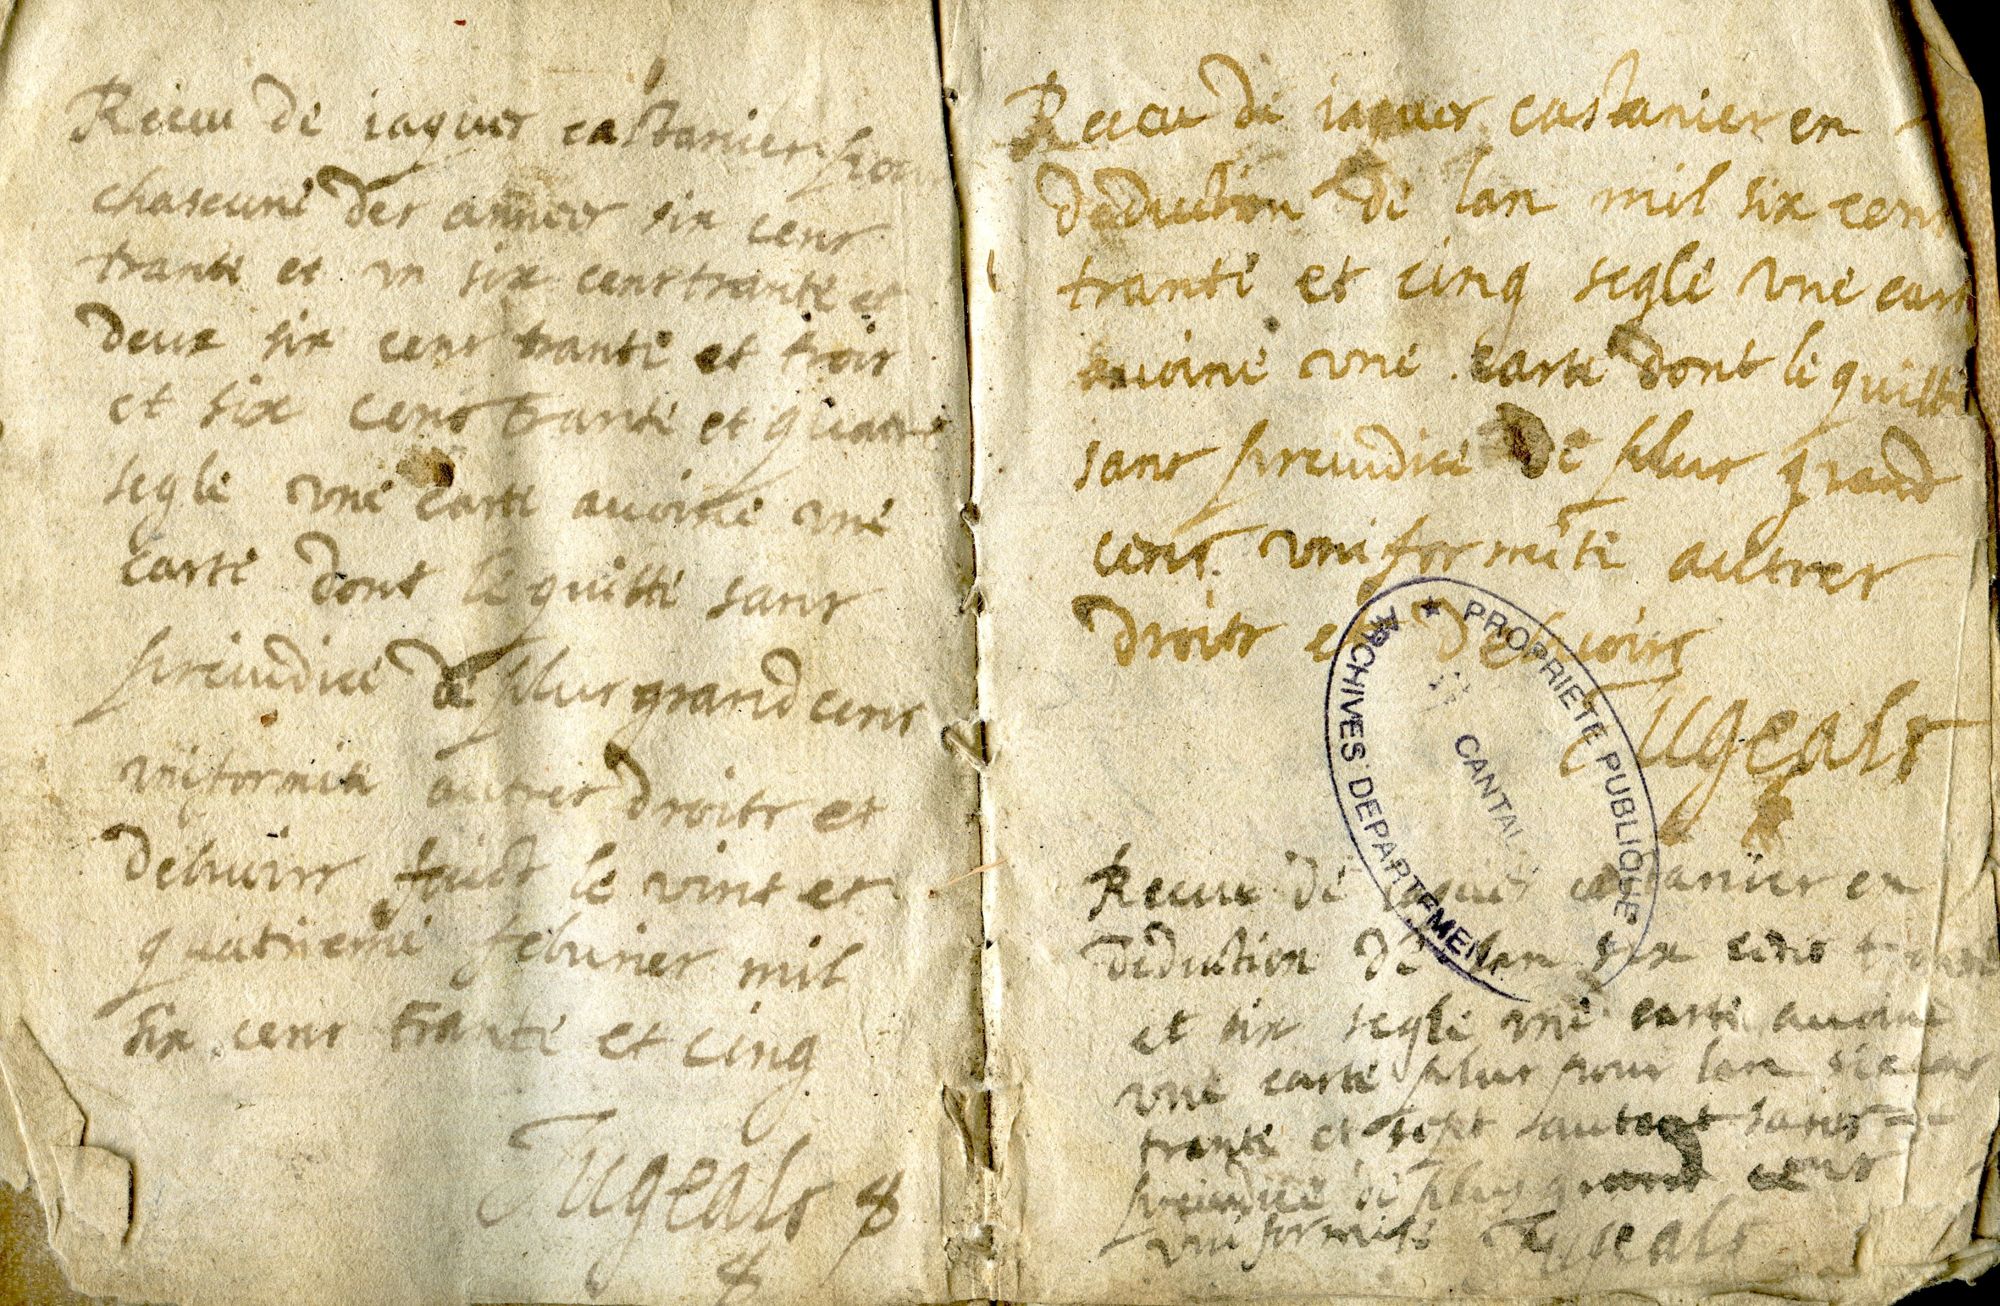 Receu de iaques castanier pour
chascune des annees six cens
trante et vn six cens trante et
deux six cens trante et trois
et six cens trante et quatre
segle vne carte auoine vne
carte dont le quitte sans
preiudice de plus grand cens
vniformite autres droits et
debuoirs faict le vint et
quatrieme feburier mil
six cens trante et cinq
Jugeals
Receu de iaques castanier en
deduction de lan mil six cens
trante et cinq segle vne carte
auoine vne carte dont le quitte
sans preiudice de plus grand
cens vniformite autres
droits et debuoirs
Jugeals
★ PROPRIETE PUBLIQUE ★
ARCHIVES DEPARTEMEN
CANTAL
Receu de iaques castanier en
deduction de lan six cens trante
et six segle vne carte auoine
vne carte plus pour lan six cens
trante et sept autant sans
preiudice de plus grand cens
vniformite Jugeals